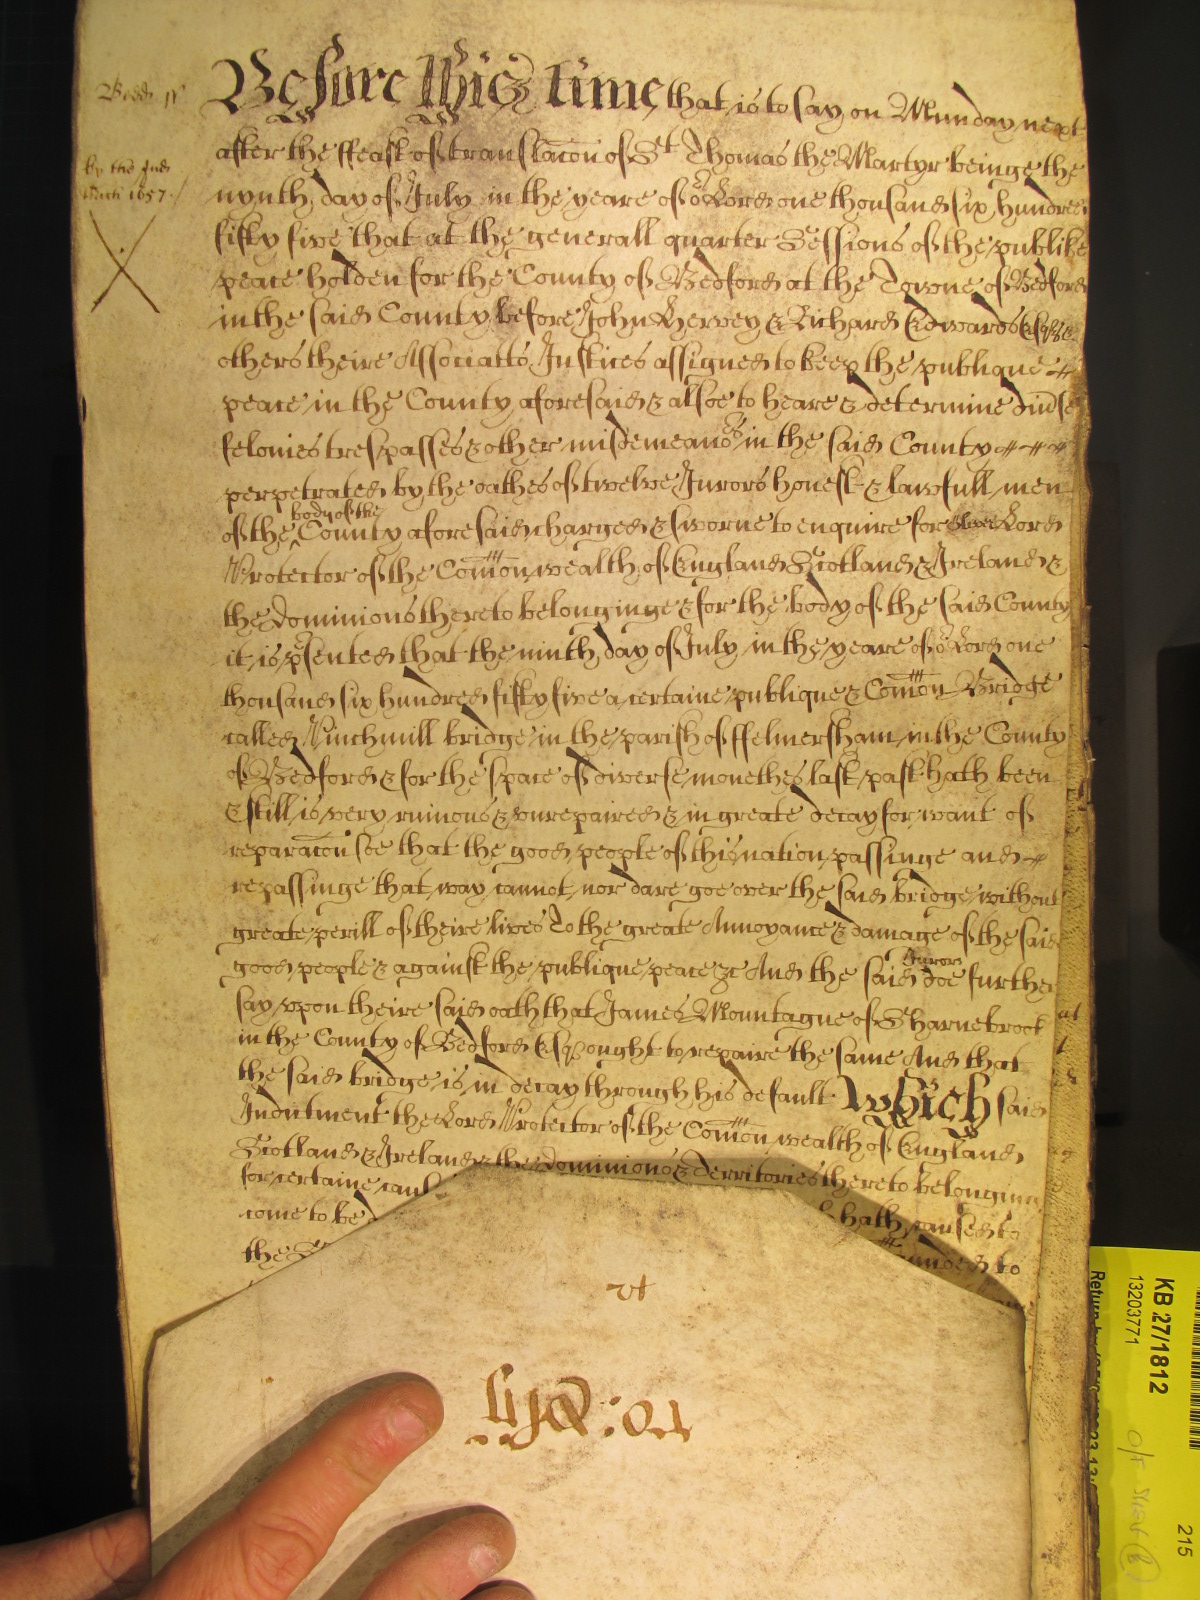 Bedd ss
by the Judg
Marti 1657
Before this time that is to say on Munday next
after the ffeast of translacon of St Thomas the Martyr beinge the
nynth day of July in the yeare of or Lord one thousand six hundred
fifty five that at the generall quarter Sessions of the publike
peace holden for the County of Bedford at the Towne of Bedford
in the said County before John Hervey & Richard Edwards Esqrs &
others theire Associatts Justices assigned to keep the publique
peace in the County aforesaid & alsoe to heare & determine divse
felonies trespasses & other misdemeanors in the said County
perpetrated by the oathes of twelve Jurors honest & lawfull men
body of the
of the County aforesaid charged & sworne to enquire for Lord
Protector of the Comon wealth of England Scotland & Ireland &
the Dominions thereto belonginge & for the body of the said County
it is psented that the ninth day of July in the yeare of or Lord one
thousand six hundred fifty five a certaine publique & Comon Bridge
called Winchmill bridge in the parish of ffelmersham in the County
of Bedford & for the space of diverse monethes last past hath been
& still is very ruinous & unrepaired & in greate decay for want of
reparacon soe that the good people of this nation passinge and
repassinge that way cannot nor dare goe over the said bridge without
greate perill of theire lives To the greate Annoyance & damage of the said
Jurors
good people & against the publique peace &c And the said doe further
say upon theire said oath that James Mountague of Sharnebrook
in the County of Bedford Esqr ought to repaire the same And that
the said bridge is in decay through his default Which said
Indictment the Lord Protector of the Comon wealth of England
Scotland & Ireland & the dominions & Territories thereto belonging
for certaine caus
come to be d hath caused to
the to
ro: Orig
KB 27/1812
13203771
215